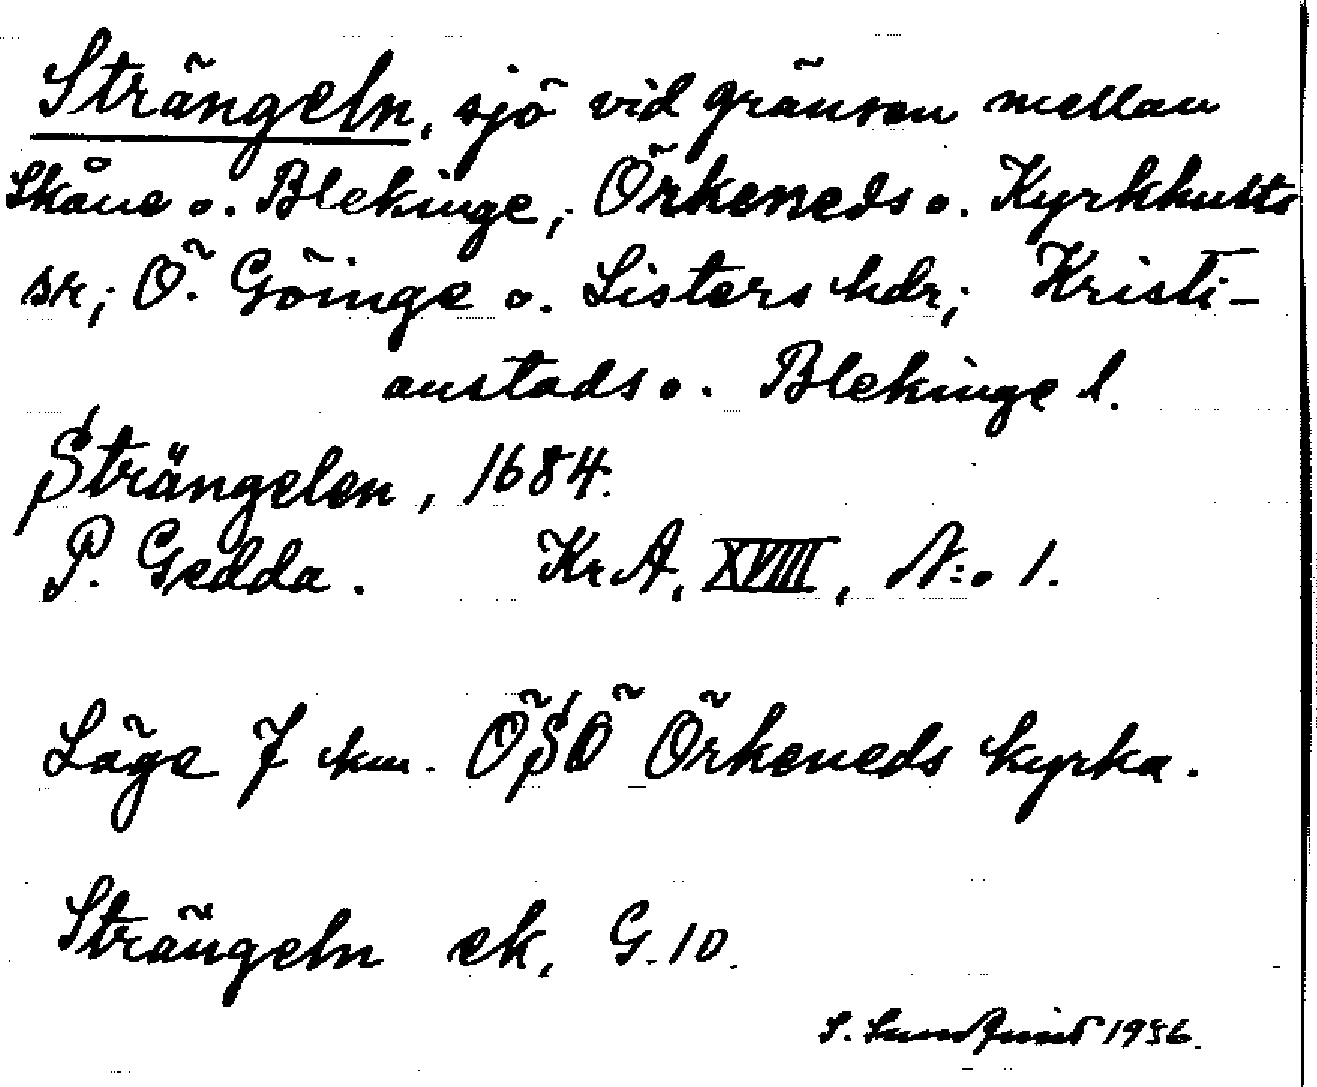 Strängeln, sjö vid gränsen mellan
Skåne o. Blekinge, Örkeneds o. Kyrkhults
sr; Ö. Göinge o. Listers hdr; Kristi-
anstads o. Blekinge l.
Strängelen, 1684.
P. Gedda. KrA, XVIII, N:o 1.
Läge 7 km. ÖSÖ Örkeneds kyrka.
Strängeln ek, G.10.
S. Sundquist 1936.